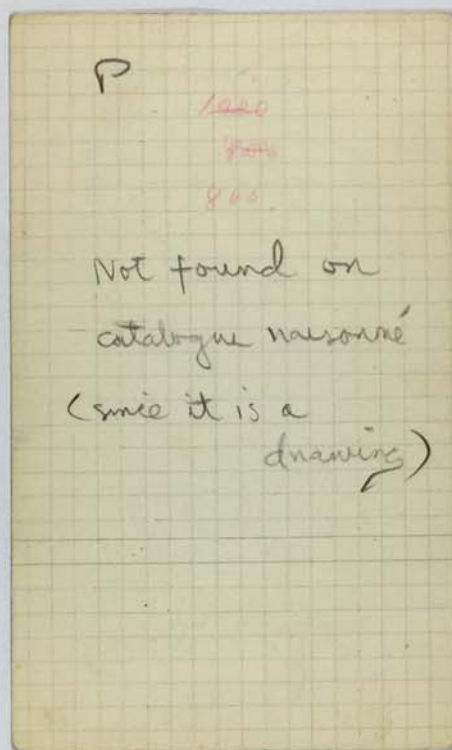 P
1000
800
Not found on
catalogue raisonné
(since it is a
drawing)